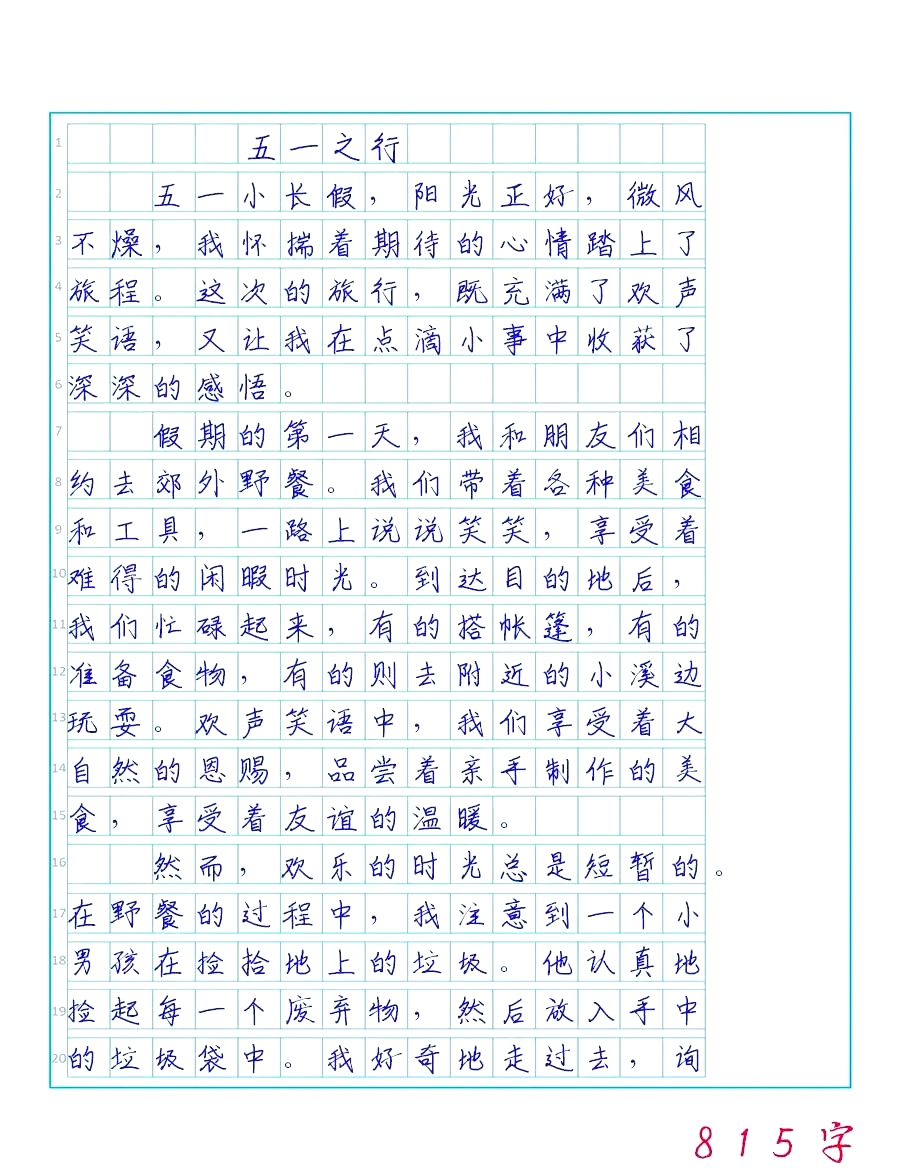 五一之行
1
2 五一小长假，阳光正好，微风
3 不燥，我怀揣着期待的心情踏上了
4 旅程。这次的旅行，既充满了欢声
5 笑语，又让我在点滴小事中收获了
6 深深的感悟。
7 假期的第一天，我和朋友们相
8 约去郊外野餐。我们带着各种美食
9 和工具，一路上说说笑笑，享受着
10 难得的闲暇时光。到达目的地后，
11 我们忙碌起来，有的搭帐篷，有的
12 准备食物，有的则去附近的小溪边
13 玩耍。欢声笑语中，我们享受着大
14 自然的恩赐，品尝着亲手制作的美
15 食，享受着友谊的温暖。
16 然而，欢乐的时光总是短暂的。
17 在野餐的过程中，我注意到一个小
18 男孩在捡拾地上的垃圾。他认真地
19 捡起每一个废弃物，然后放入手中
20 的垃圾袋中。我好奇地走过去，询
815字